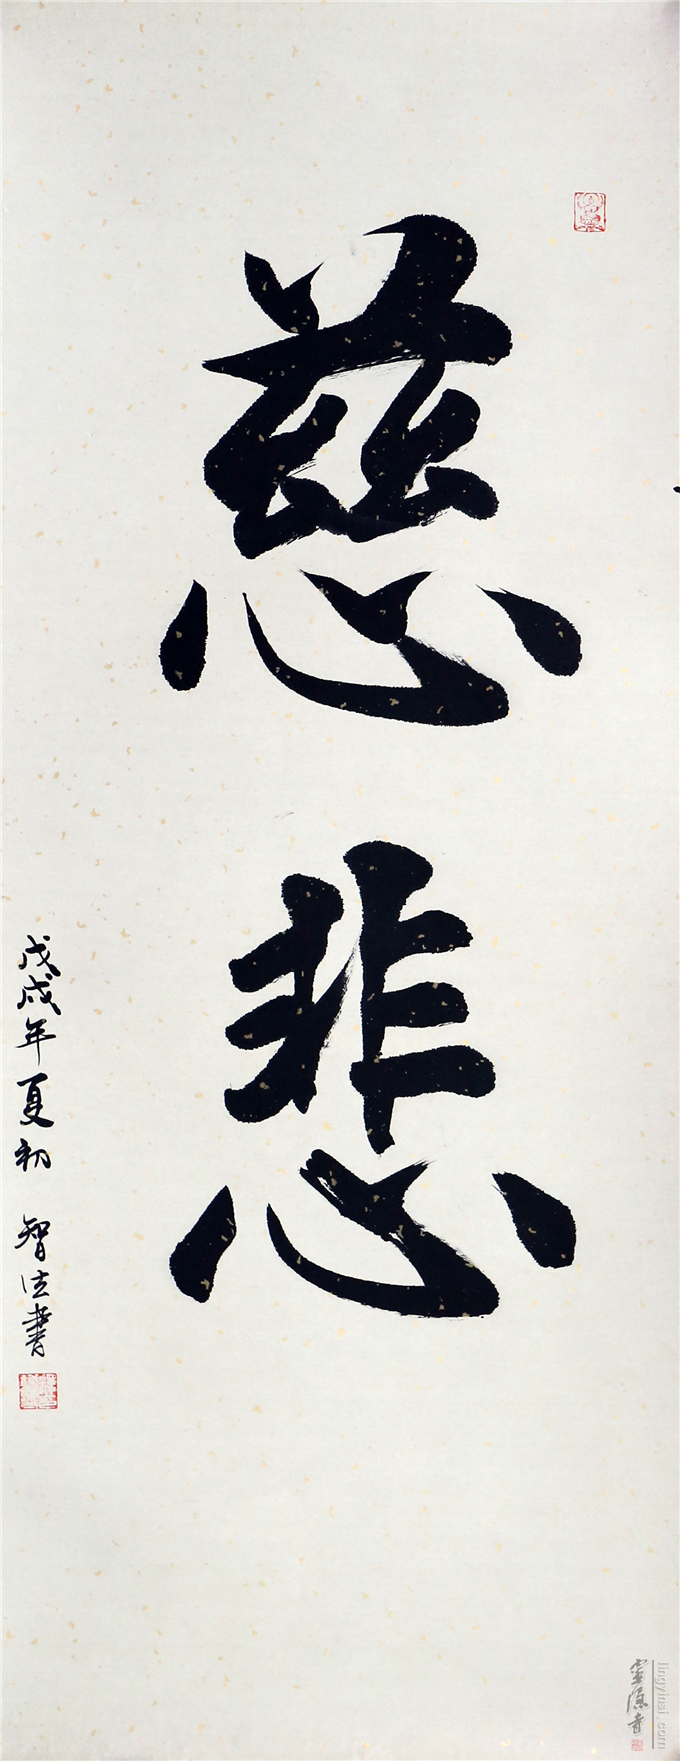 慈悲
戊戌年夏初 智法書
靈隱寺
lingyinsi.com